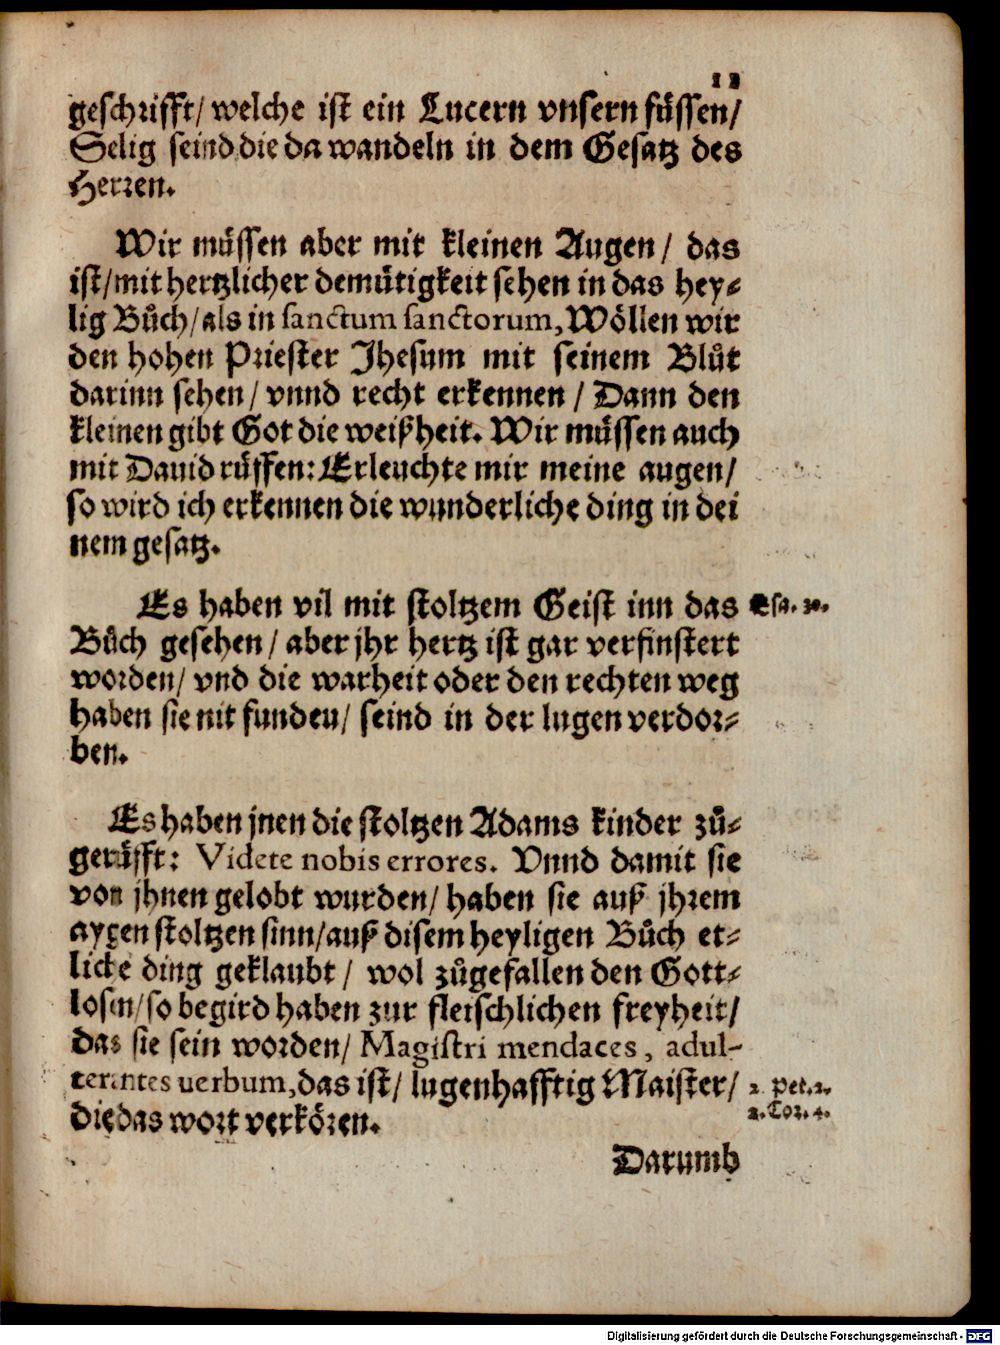 12
geschrifft/ welche ist ein Lucern vnsern füssen/
Selig seind die da wandeln in dem Gesatz des
Herren.
Wir müssen aber mit kleinen Augen/ das
ist/ mit hertzlicher demütigkeit sehen in das hey⸗
lig Bůch/ als in sanctum sanctorum, Wöllen wir
den hohen Priester Jhesum mit seinem Blůt
darinn sehen/ vnnd recht erkennen/ Dann den
kleinen gibt Got die weißheit. Wir müssen auch
mit Dauid rüffen: Erleuchte mir meine augen/
so wird ich erkennen die wunderliche ding in dei
nem gesatz.
Es haben vil mit stoltzem Geist inn das Esa. 30.
Bůch gesehen/ aber jhr hertz ist gar verfinstert
worden/ vnd die warheit oder den rechten weg
haben sie nit funden/ seind in der lugen verdor⸗
ben.
Es haben jnen die stoltzen Adams kinder zů⸗
gerüfft: Videte nobis errores. Vnnd damit sie
von jhnen gelobt wurden/ haben sie auß jhrem
aygen stoltzen sinn/ auß disem heyligen Bůch et⸗
liche ding geklaubt/ wol zůgefallen den Gott⸗
losen/ so begird haben zur fleischlichen freyheit/
das sie sein worden/ Magistri mendaces, adul-
terantes uerbum, das ist/ lugenhafftig Maister/ 2. Pet. 2.
die das wort verkören. 2. Cor. 4.
Darumb
Digitalisierung gefördert durch die Deutsche Forschungsgemeinschaft - DFG